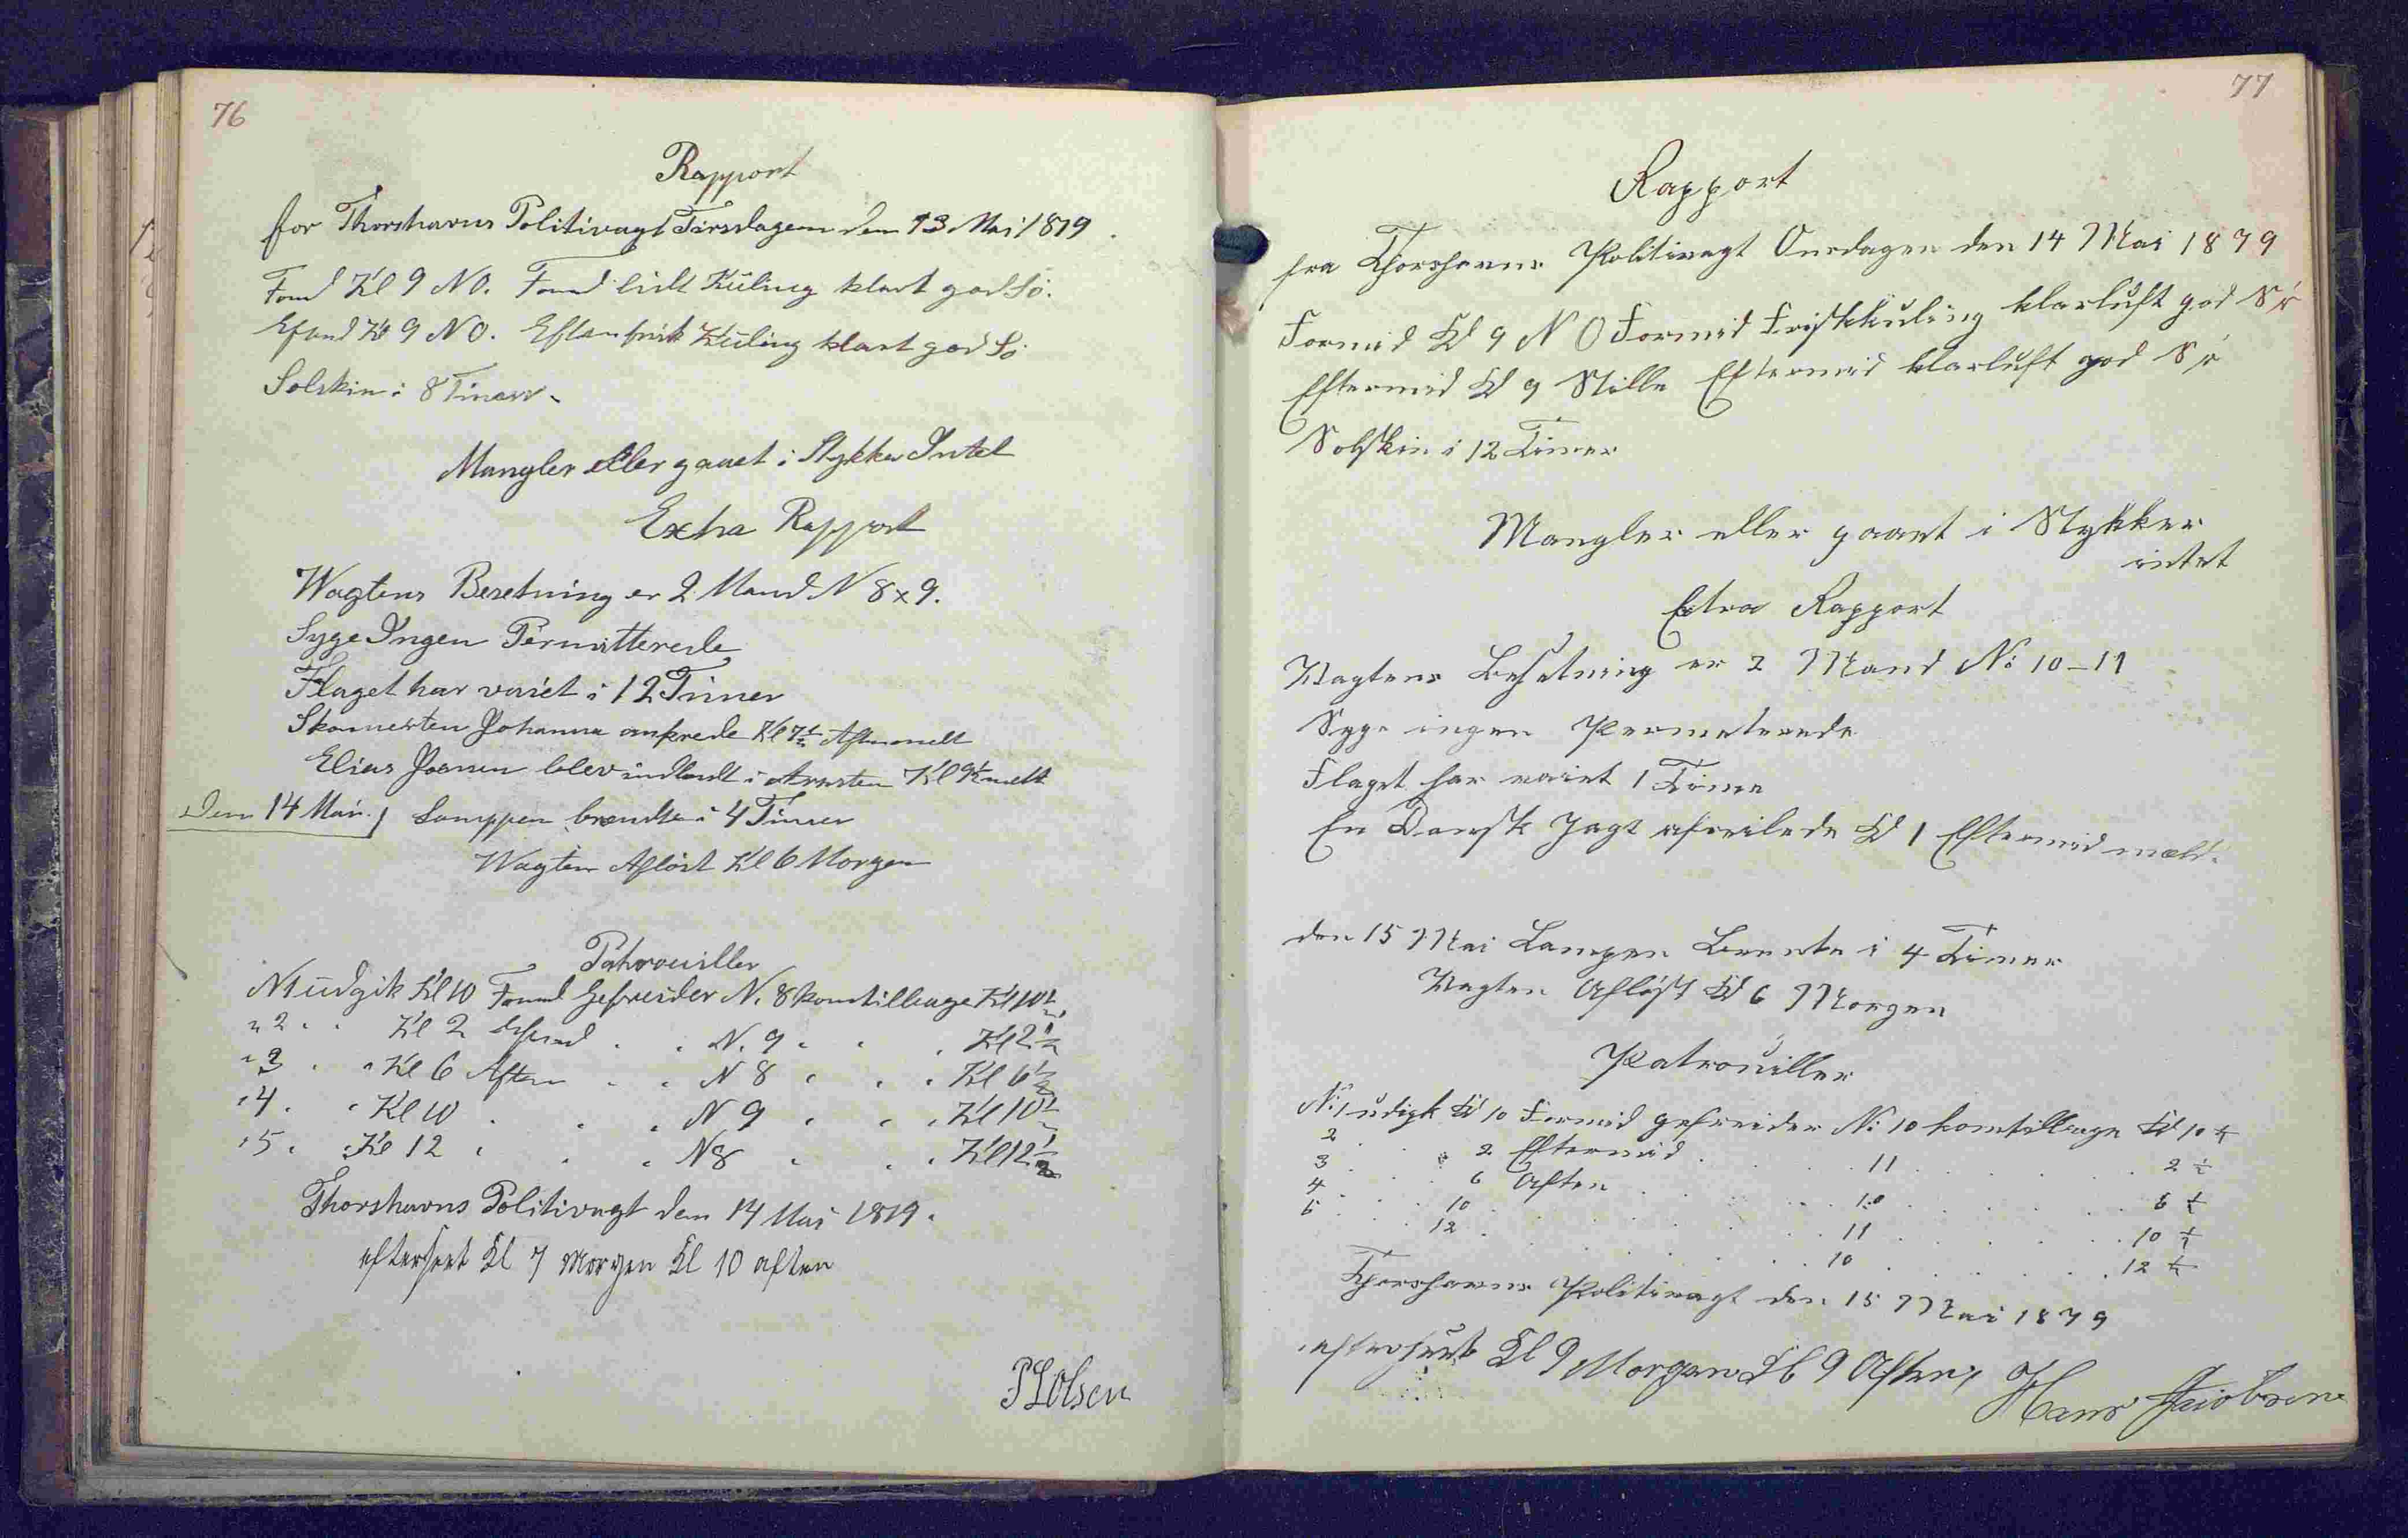 76
Rapport
for Thorshavns Politivagt Tirsdagen den 13 Mai 1879.
Formd Kl 9 NO. Formd lidt Kuling klart god Sö.
Efmd Kl 9 NO. Eftm frisk Kuling klart god Sö
Solskin i 8 Timer.
Mangler eller gaaet i Stykker Intet
Extra Rapport
Wagtens Besetning er 2 Mand N 8 x 9.
Syge Ingen Permitterede
Flaget har vaiet i 12 Timer
Skonnerten Johanna ankrede Kl 7½ Aften meldt
Elias Joensen blev indbragt i Aresten Kl 9½ meldt
Den 14 Mai. Lamppen brendte i 4 Timer
Wagten Aflöst Kl 6 Morgen
Patrouiller
N 1 udgik Kl 10 Formd Gefreider N. 8 kom tilbage Kl 10½
" 2 " " Kl 2 Efmd " " N. 9 " " " Kl 2½
" 3 " " Kl 6 Aften " " N 8 " " " Kl 6½
" 4 " " Kl 10 " " " N 9 " " " Kl 10½
" 5 " " Kl 12 " " " N 8 " " " Kl 12½
Thorshavns Politivagt den 14 Mai 1879.
efterseet Kl 7 Morgen Kl 10 aften
P L Olsen
77
Rapport
fra Thorshavns Politivagt Onsdagen den 14 Mai 1879
Formid Kl 9 N O Formid Friskkuling klarluft god Sø
Eftermid Kl 9 Stille Eftermid klarluft god Sø
Solskin i 12 Timer
Mangler eller gaaet i Stykker
intet
Extra Rapport
Vagtens Besetning er 2 Mand No 10 - 11
Syge ingen Permeterede
Flaget har vaiet 1 Time
En Dansk Jagt afseilede Kl 1 Eftermid meldt.
den 15 Mai Lampen Brente i 4 Timer
Vagten Afløst Kl 6 Morgen
Patrouiller
No 1 udigk Kl 10 Formid gefreider No 10 kom tillbage Kl 10 ½
2 . . . 2 Eftermid . . . 11 . . . 2 ½
3 . . . 6 Aften . . . 10 . . . 6 ½
4 . . . 10 . . . 11 . . . 10 ½
5 . . . 12 . . . 10 . . . 12 ½
Thorshavns Politivagt den 15 Mai 1879
efterseet Kl 9 Morgen Kl 9 Aften, Hans Jacobsen